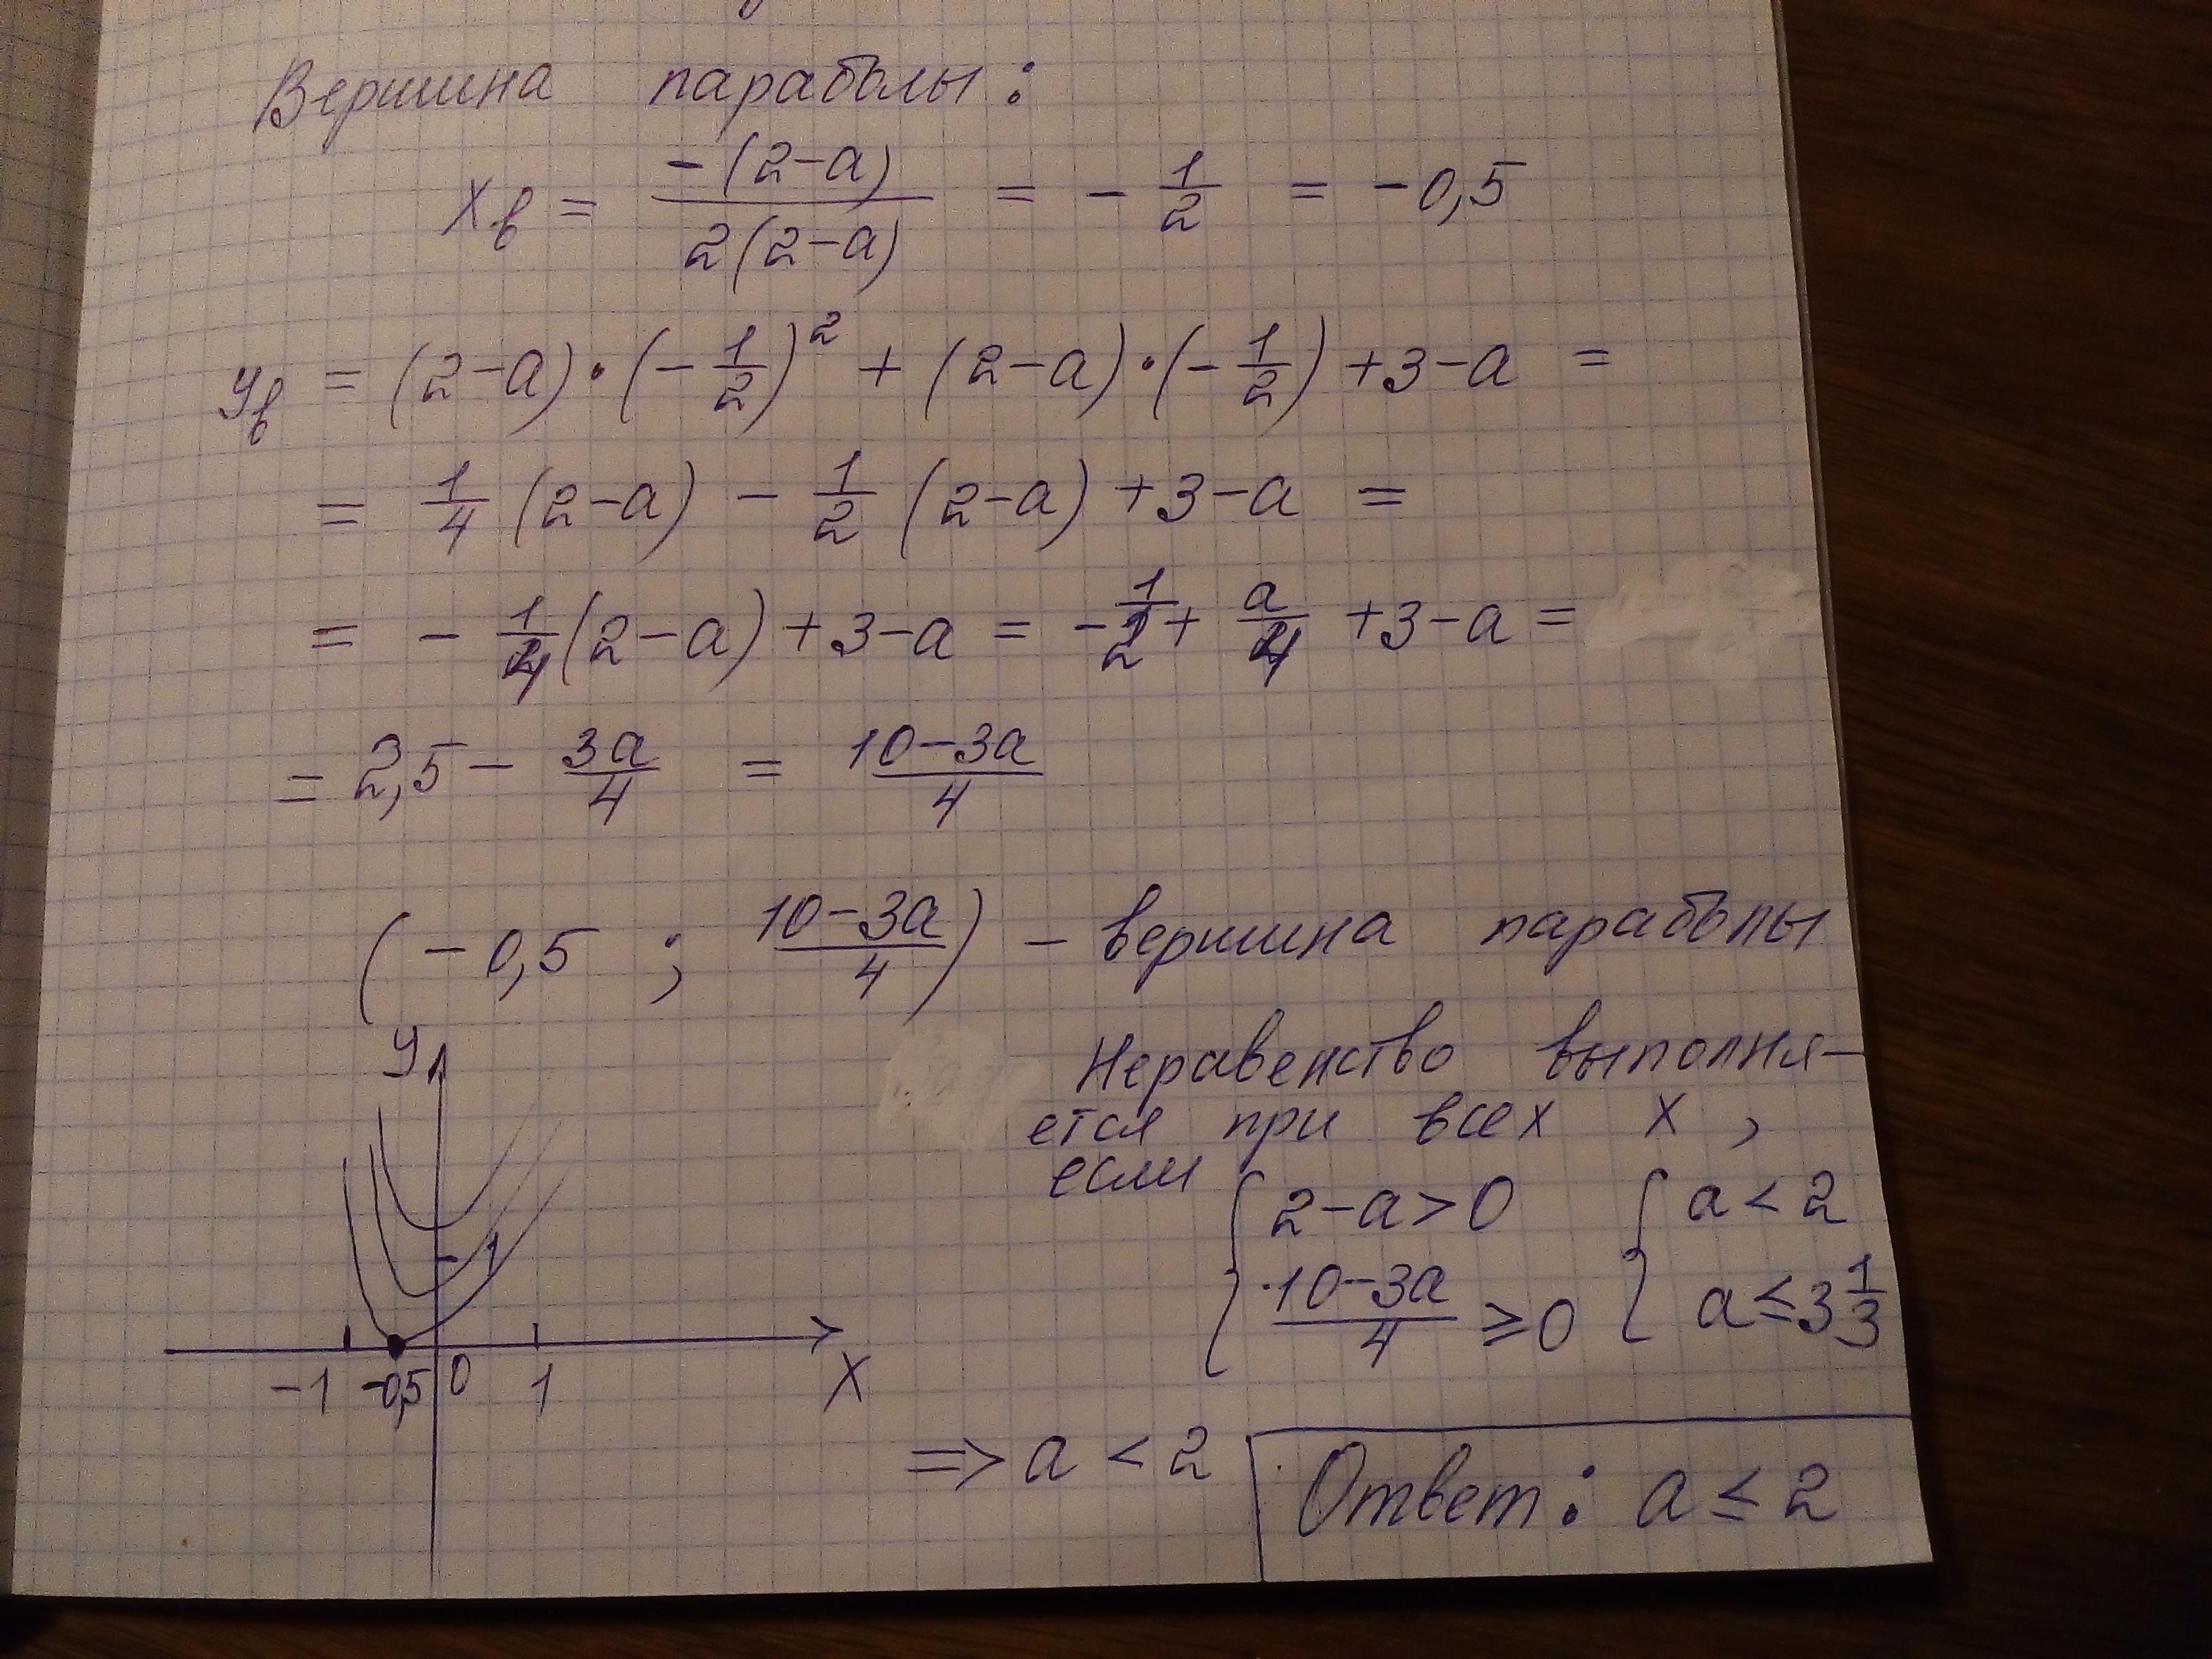 Вершина параболы:
x_в = -(2-a) / 2(2-a) = - 1/2 = -0,5
y_в = (2-a)·(-1/2)² + (2-a)·(-1/2) +3-a =
= 1/4 (2-a) - 1/2 (2-a) +3-a =
= - 1/4 (2-a) +3-a = - 1/2 + a/4 +3-a =
= 2,5 - 3a/4 = (10-3a)/4
(-0,5 ; (10-3a)/4) - вершина параболы
Неравенство выполня-
ется при всех x,
если { 2-a>0 { a<2
(10-3a)/4 ≥0 a≤3 1/3
y
1
-1 -0,5 0 1 X
=> a < 2
Ответ: a ≤ 2